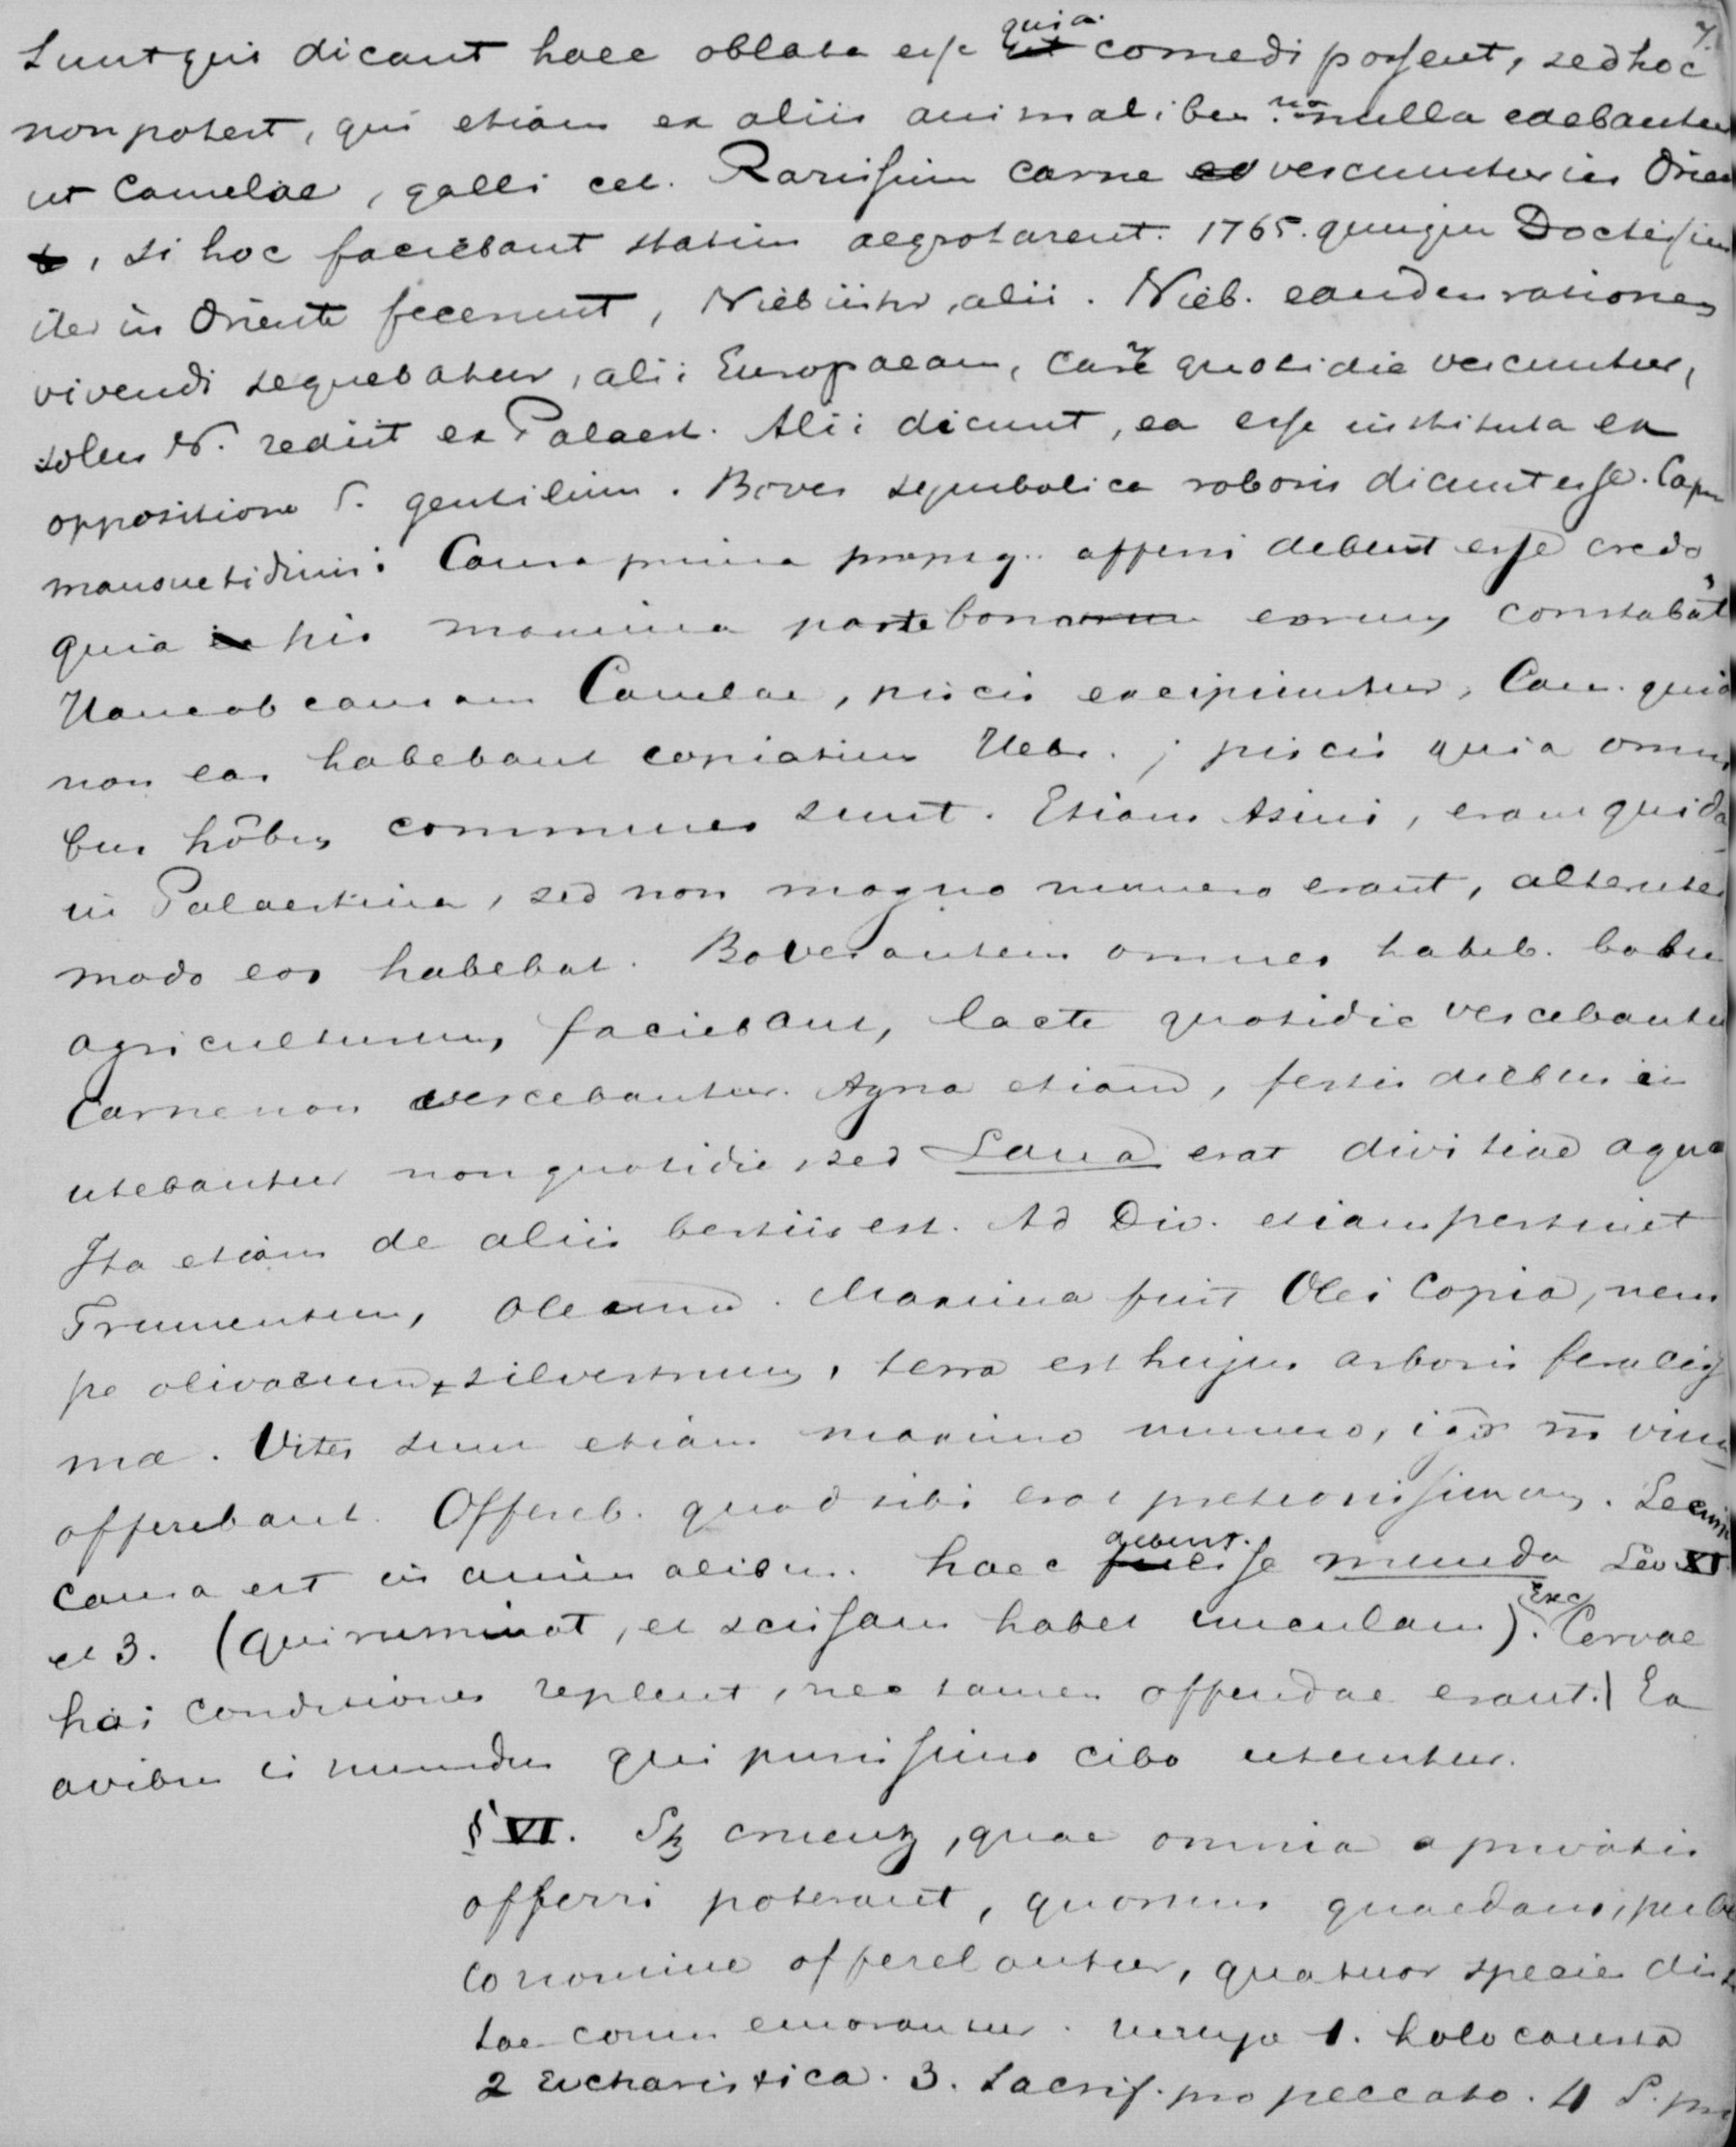 7.
Sunt qui dicant haec oblata esse quia comedi possent, sed hoc
non potest, qui etiam ex aliis animalibus nonnulla edebantur
ut Camelae, galli cet. Rarissim carne vescuntur in Orien
, si hoc faciebant statim aegrotarent. 1765. quinque Doctissim
iter in Oriente fecerunt, Niebühr, alii. Nieb. eandem rationem
vivendi sequebatur, alii Europaeam, carne quotidie vescuntur,
solus N. rediit ex Palaest. Alii dicunt, ea esse instituta ex
oppositione S. gentilium. Boves symbolica roboris dicunt esse. Capr
mansuetudinis. Causa prima propt q. offerri debent esse credo
quia his maxima parte bon eorum constabat
Hanc ob causam Camelae, piscis excipiuntur, Cam. quia
non eas habebant copiatim Hebr.; piscis quia omni
bus hôbus communes sunt. Etiam Asini, erant quida
in Palaestina, sed non magno numero erant, alteruter
modo eos habebat. Boves autem omnes habeb. bobus
agriculturam faciebant, lacte quotidie vescebantur
Carne non vescebantur. Agna etiam, festis diebus ei
utebantur non quotidie, sed Lana erat divitiae agna
Ita etiam de aliis bestiis est. Ad Div. etiam pertinet
Frumentum, oleum. Maxima fuit Olei Copia, nem
pe olivarum silvestrium, terra est hujus arboris feraciss
ma. Vites sunt etiam maximo numero, igr vinum
offerebant. Offereb. quod sibi erat pretiosissimum. Secunda
causa est in animalibus. haec munda Lev XI
et 3. (qui ruminat, et scissam habet unculam). Exc Cervae
has conditiones replent, nec tamen offerendae erant.) Ex
avibus ii mundus qui purissimo cibo utuntur.
§ VI. cruenta, quae omnia a privatis
offerri poterant, quorum quaedam, publi
co nomine offerebantur, quatuor species dist
tae commemorantur. nempe 1. holocausta
2 Eucharistica. 3. Sacrif. pro peccato. 4 S. pro